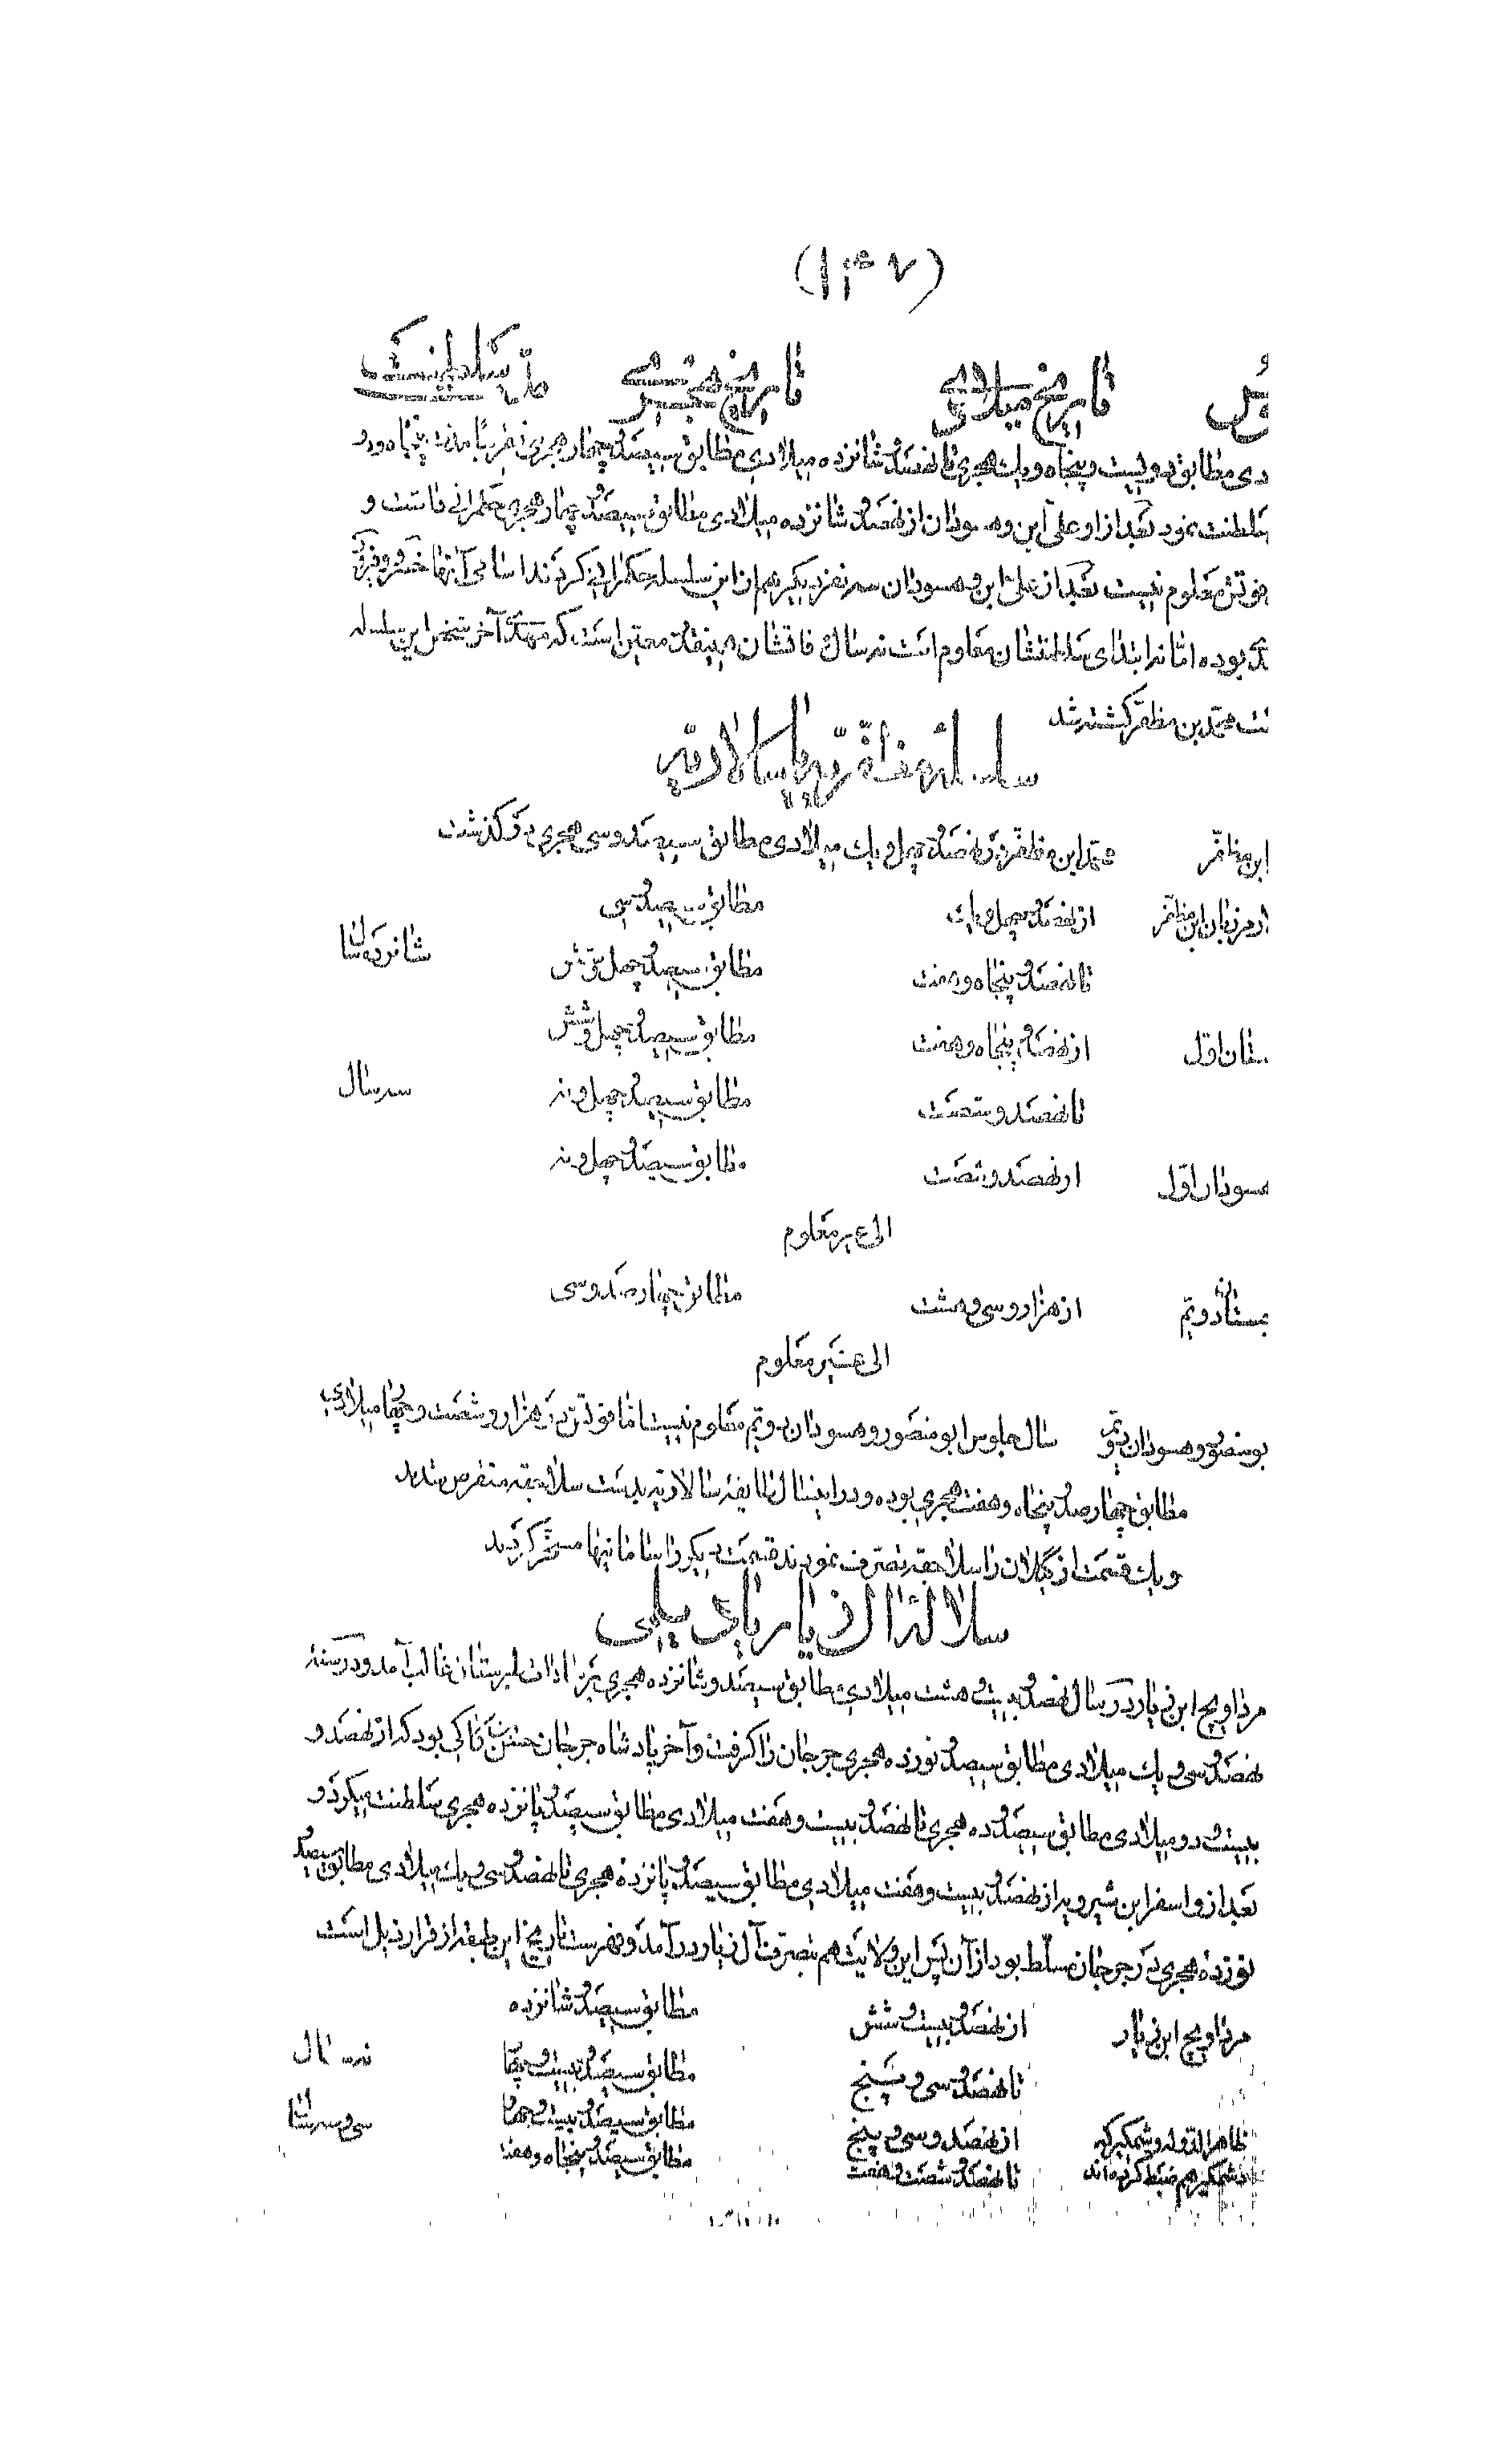 تاریخ میلادی تاریخ هجری مدّت سلطنت
دی مطابق دویست و پنجاه و یک هجری تا نهصد و شانزده میلادی مطابق سیصد و چهار هجری تقریباً مدت پنجاه و دو
سلطنت نمود بعد از او علی ابن وهسودان از نهصد و شانزده میلادی مطابق سیصد و چهار هجری حکمرانی داشت و
فوتش معلوم نیست بعد از علی ابن وهسودان سه نفر دیگر هم از این سلسله حکمرانی کردند اسامی آنها خسرو و
بوده امّا نه ابتدای سلطنتشان معلوم است نه سال فاتشان اینقدر معین است که آخر شخص این سلسله
محمّد بن مظفّر کشته شد
سلسله مسافریه یا سالاریّه
ابن مظفّر محمّد ابن مظفّر در نهصد و چهل و یک میلادی مطابق سیصد و سی هجری درگذشت
مرزبان ابن مظفّر از نهصد و چهل و یک مطابق سیصد و سی
تا نهصد و پنجاه و هفت مطابق سیصد و چهل و شش شانزده سال
ستان اوّل از نهصد و پنجاه و هفت مطابق سیصد و چهل و شش
تا نهصد و شصت مطابق سیصد و چهل و نه سه سال
هسودان اوّل از نهصد و شصت مطابق سیصد و چهل و نه
الی غیر معلوم
ستان دویّم از هزار و سی و هشت مطابق چهارصد و سی
الی غیر معلوم
بو منصور وهسودان دویّم سال جلوس ابو منصور وهسودان دویّم معلوم نیست امّا فوتش در هزار و شصت و چهار میلادی
مطابق چهارصد و پنجاه و هفت هجری بوده و در اینسال طایفهٔ سالاریّه بدست سلاجقه منقرض شدند
و یک قسمت از گیلان را سلاجقه تصرف نمودند قسمت دیگر را سامانیها مسخّر کردند
سلالهٔ آل زیار یا دیلمی
مرداویج ابن زیار در سال نهصد و بیست و هشت میلادی مطابق سیصد و شانزده هجری بر سادات طبرستان غالب آمد و در سنهٔ
نهصد و سی و یک میلادی مطابق سیصد و نوزده هجری جرجان را گرفت و آخر پادشاه جرجان حسن بن کاکی بود که از نهصد و
بیست و دو میلادی مطابق سیصد و ده هجری تا نهصد و بیست و هفت میلادی مطابق سیصد و پانزده هجری سلطنت میکرد و
بعد از او اسفر ابن شیرویه از نهصد و بیست و هفت میلادی مطابق سیصد و پانزده هجری تا نهصد و سی و یک میلادی مطابق سیصد و
نوزده هجری در جرجان مسلّط بود از آن پس این ولایت هم بتصرف آل زیار در آمد و فهرست تاریخ این طبقه از قرار ذیل است
مرداویج ابن زیار از نهصد و بیست و شش مطابق سیصد و شانزده
تا نهصد و سی و پنج مطابق سیصد و بیست و چهار نه سال
ظاهر الدّوله وشمگیر که از نهصد و سی و پنج مطابق سیصد و بیست و چهار سی و سه سال
دشمگیر هم ضبط کرده‌اند تا نهصد و شصت و هفت مطابق سیصد و پنجاه و هفت